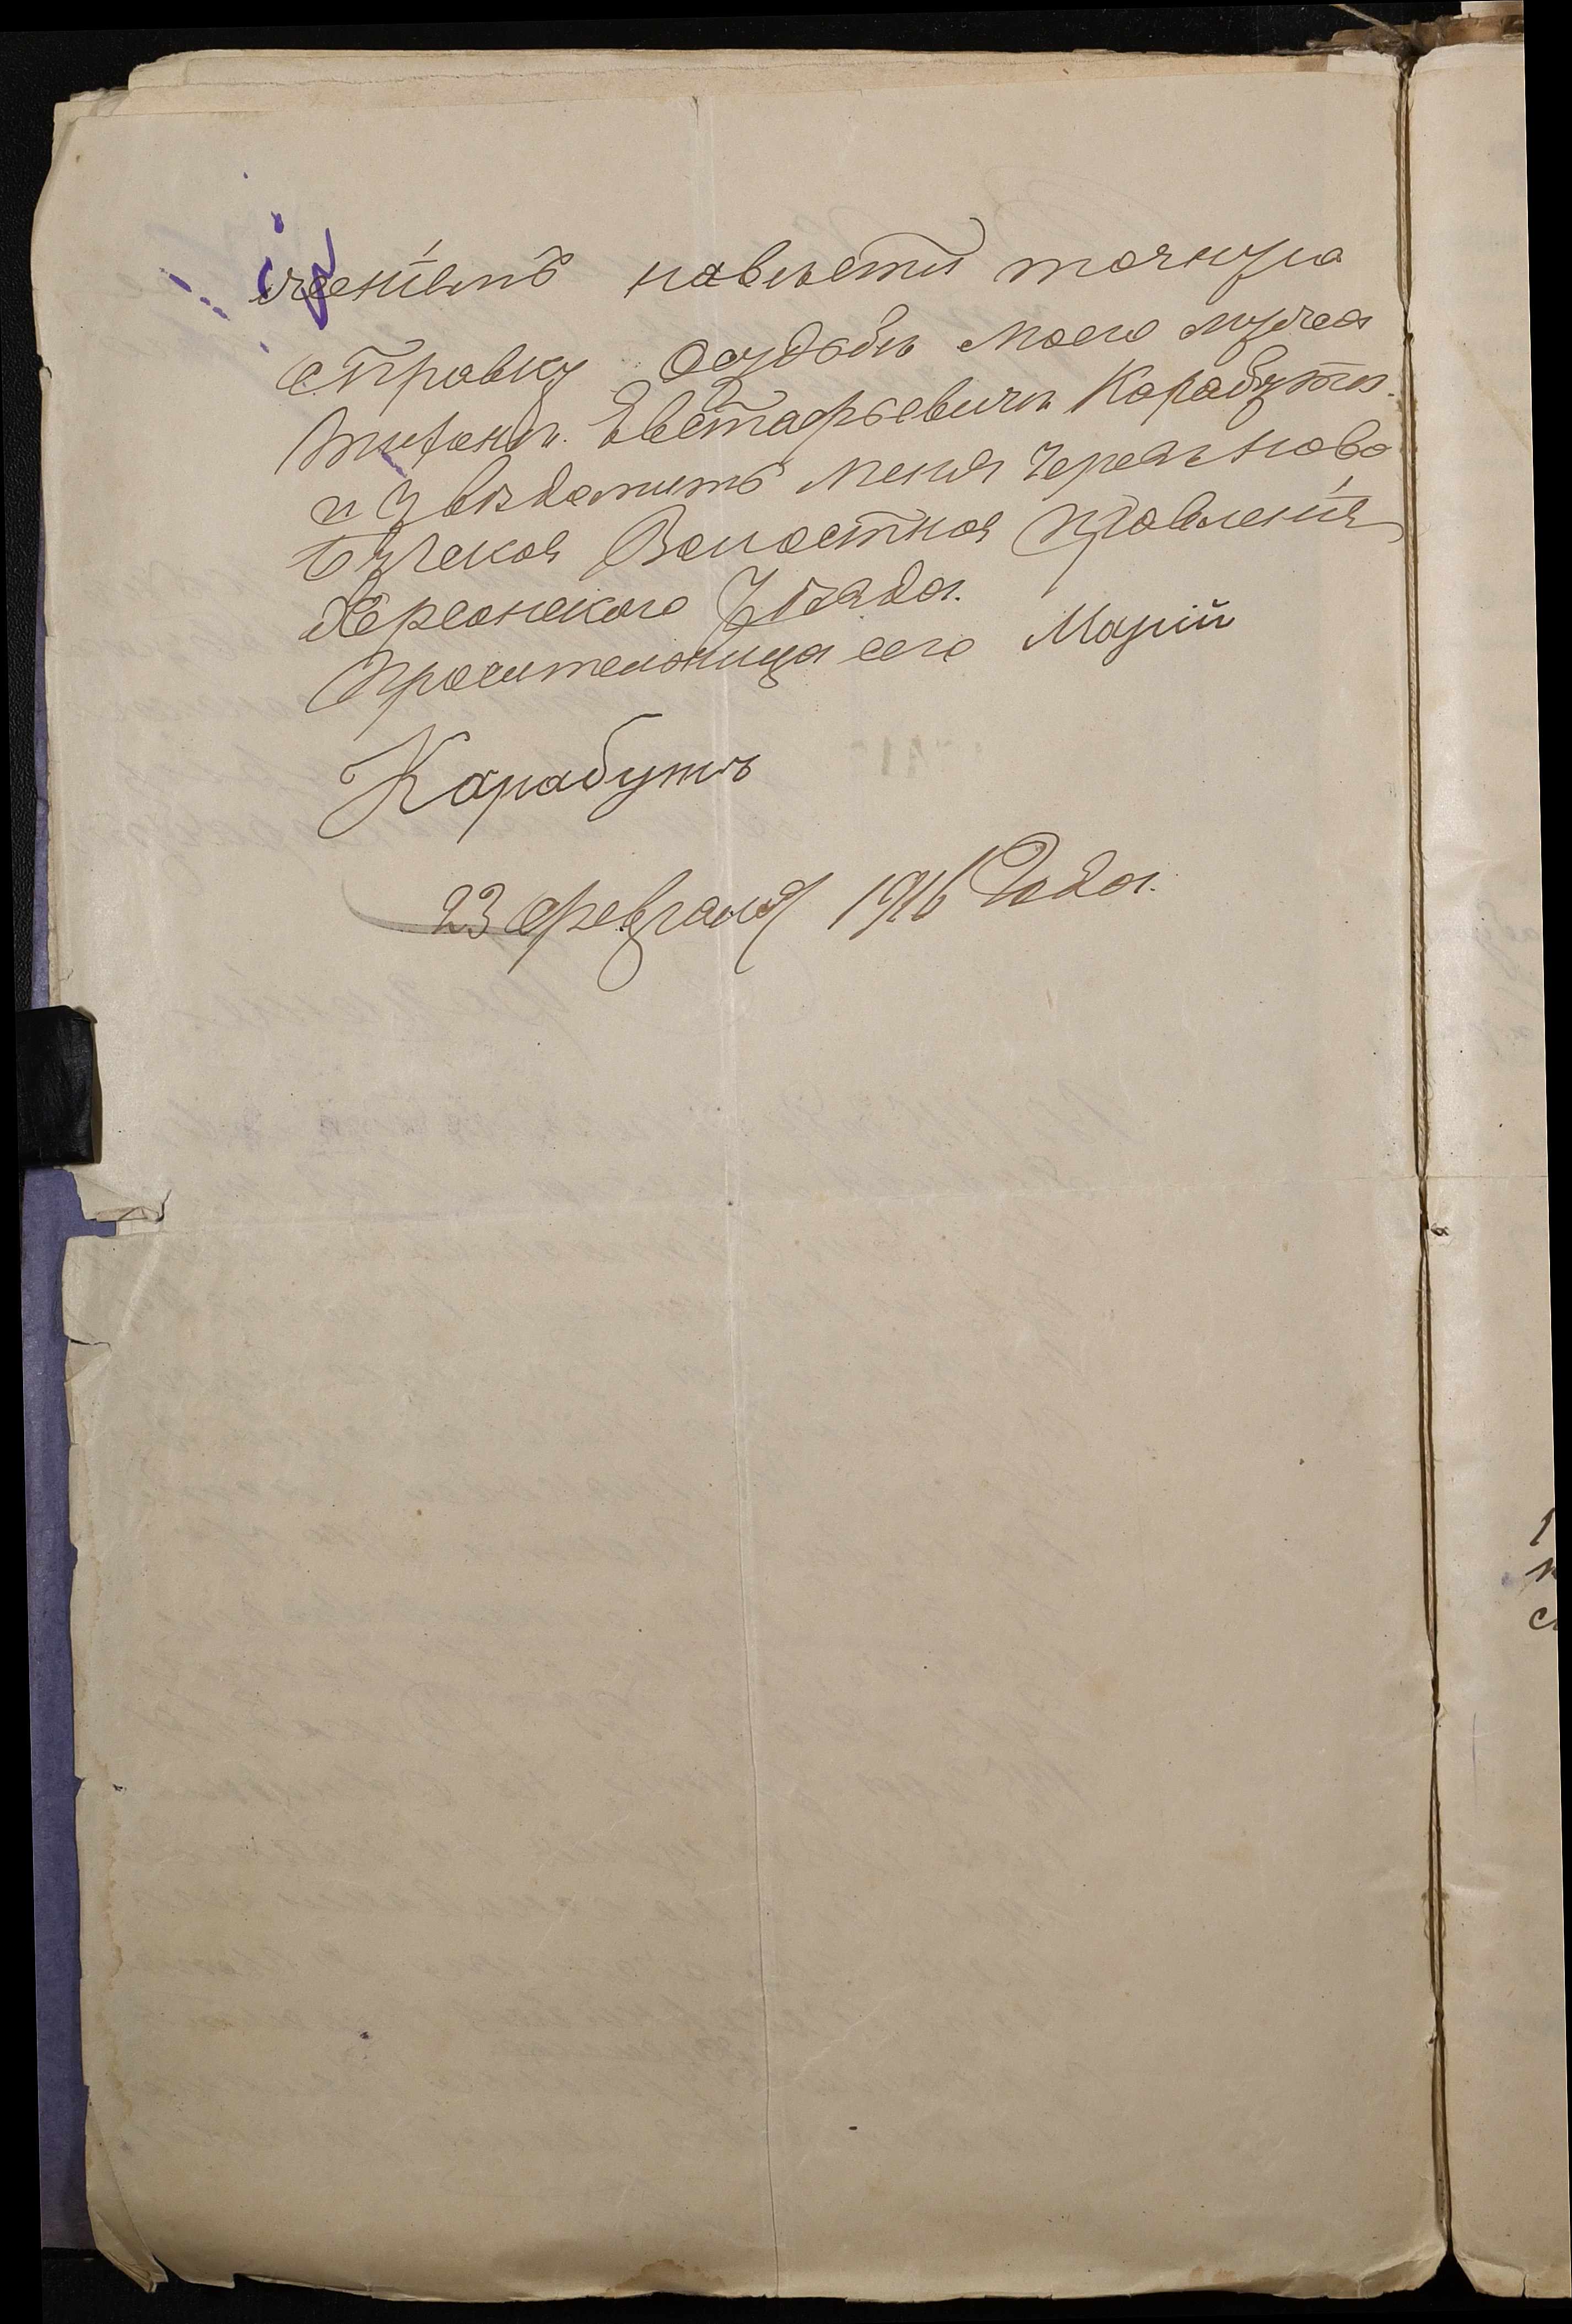 навьсти точную
справку осудьбѣ моего мужа
Евстафьевичъ Карабута.
извѣдомить меня черезъ ново
бугская Волостноя правленія
Херсонского Уѣзда.
просительница сего Марій
Карабутъ
23 февраля 1916 Года.